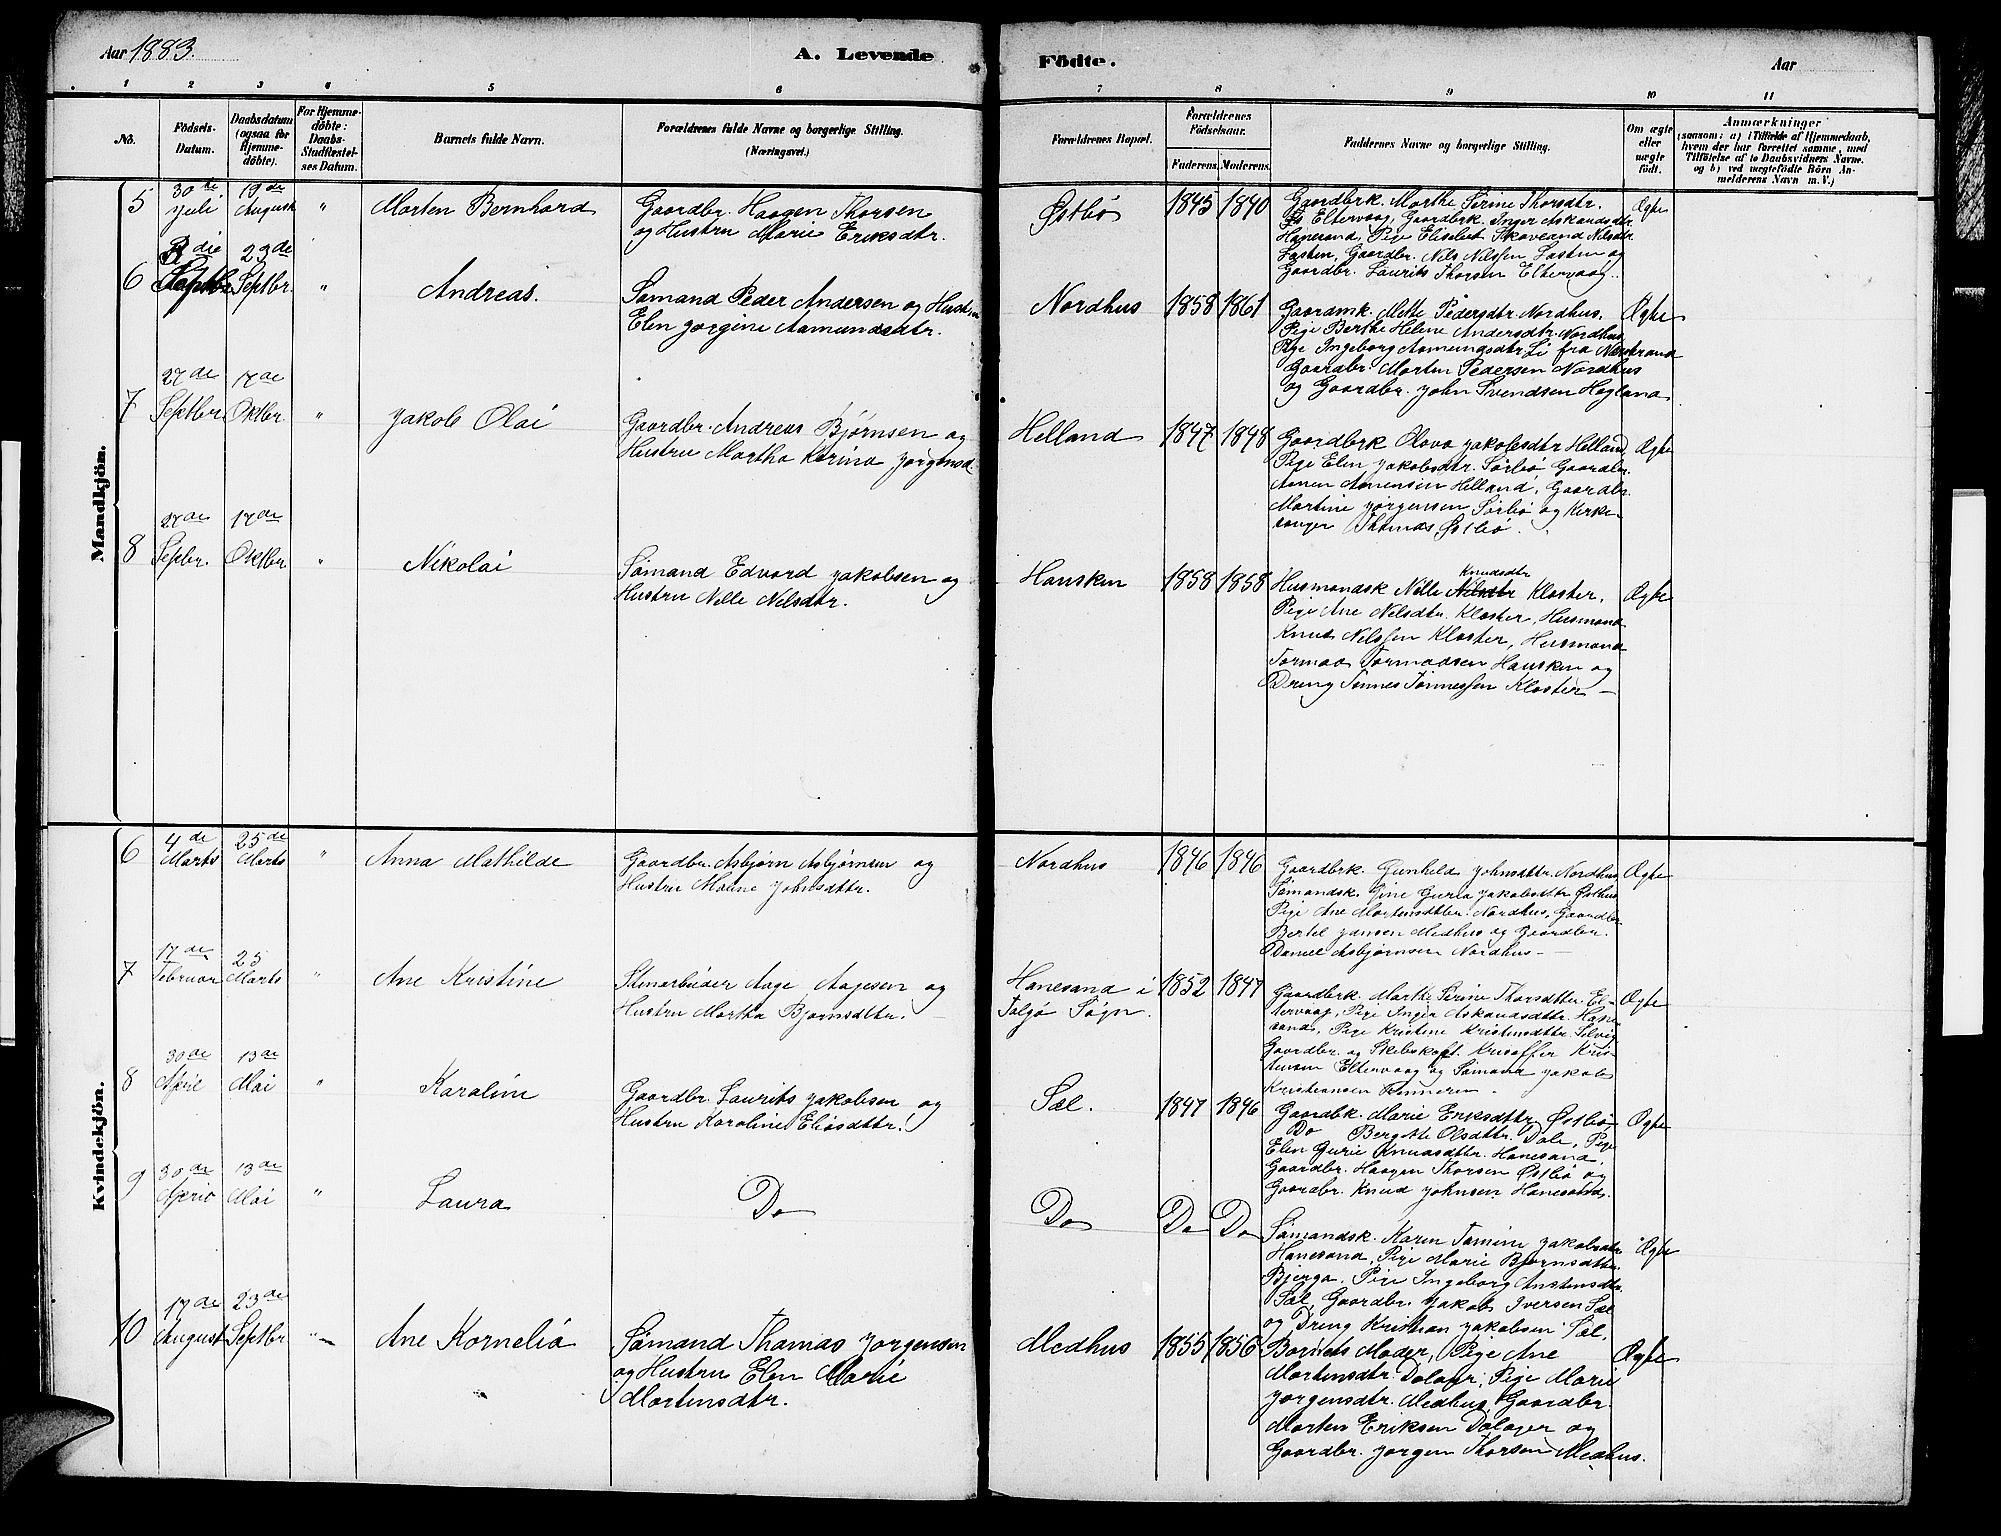 Aar 1883.
A. Levende
Födte.
Aar
1 2 3 4 5 6 7 8 9 10 11
No.
Födsels-
Datum.
Daabsdatum
(ogsaa for
Hjemme-
döbte).
For Hjemme-
döbte:
Daabs-
Stadfæstel-
ses Datum.
Barnets fulde Navn.
Forældrenes fulde Navne og borgerlige Stilling.
(Næringsvei.)
Forældrenes Bopæl.
Forældrenes
Födselsaar.
Faderens. Moderens.
Faddernes Navne og borgerlige Stilling.
Om ægte
eller
uægte
födt.
Anmærkninger
(saasom: a) i Tilfælde af Hjemmedaab,
hvem der har forrettet samme, med
Tilföielse af to Daabsvidners Navne.
og b) ved uægtefödte Börn An-
melderens Navn m. V.)
Mandkjön.
5
30te
Juli
19de
August
"
Morten Bernhard
Gaardbr. Haagen Thorsen
og Hustru Marie Eriksdtr.
Østbø
1845 1840
Gaardbrk. Marthe Serine Thorsdtr.
Eltervaag, Gaardbrk. Inger Askandsdtr.
Hanesand, Pige Elisabet Nilsdtr.
Gaardbr. Nils Nilssen og
Gaardbr. Laurits Thorsen Eltervaag.
Ægte
6
die
Septbr
23de
Septbr.
"
Andreas.
Sømand Peder Andersen og Hustru
Elen Jorgine Aamundsdtr.
Nordhus
1858 1861
Gaardmk. Mette Pedersdtr. Nordhus,
Pige Berthe Helene Andersdtr. Nordhus
Pige Ingeborg fra Nærstrand
Gaardbr. Morten Pedersen Nordhus
og Gaardbr. John Svendsen Hogland
Ægte
7
27de
Septbr
17de
Oktbr.
"
Jakob Olai
Gaardbr. Andreas Bjørnsen og
Hustru Martha Karina Jorgensd
Helland
1847 1848
Gaardbrk Olava Jakobsdtr Helland
Pige Elen Jakobsdtr. Sørbø Gaardbr.
Helland, Gaardbr.
Martine Jørgensen Sørbø og Kirke-
sanger Thomas Østbø.
Ægte
8
27de
Septbr.
17de
Oktbr
"
Nikolai
Sømand Edvard Jakobsen og
Hustru Nille Nilsdtr.
Hausken
1858 1858
Knudsdtr
Husmandsk Nille Nilsdtr Kloster,
Pige Ane Nilsdtr. Kloster, Husmand
Knud Nilssen Kloster, Husmand
Tormod Tormodsen Hausken og
Dreng Tønnes Tønnessen Kloster
Ægte
Kvindekjön.
6
4de
Marts
25de
Marts
"
Anna Mathilde
Gaardbr. Asbjørn Asbjørnsen og
Hustru Malene Johnsdttr.
Nordhus
1846 1846
Gaardbrk. Gunhild Johnsdttr. Nordhus
Sømandsk. Gine Guria Jakobsdttr Østhus
Pige Ane Mortensdtter. Nordhus, Gaardbr
Bertel Jansen Medhus og Gaardbr.
Daniel Asbjørnsen Nordhus
Ægte
7
17de
Februar
25
Marts
"
Ane Kristine
Stenarbeider Aage Aagesen og
Hustru Martha Bjørnsdttr.
Hanesand i
Talgø Sogn.
1852 1847
Gaardbrk. Marthe Serine Thorsdttr. El-
tervaag, Pige Inger Askandsdttr. Hane-
sand, Pige Kristine Kristensdttr. Selvig
Gaardbr. og Skibskaft. Kristoffer Kris-
tensen Eltervaag og Sømand Jakob
Kristiansen Renneren.
Ægte
8
30de
April
13de
Mai
"
Karoline
Gaardbr. Laurits Jakobsen og
Hustru Karoline Eliasdttr.
Sæl.
1847 1846
Gaardbk. Marie Eriksdttr. Østbø,
Do Bergitte Olsdttr. Dale, Pige
Elen Gurie Knudsdttr. Hanesand,
Gaardbr. Haagen Thorsen Østbø og
Gaardbr. Knud Johnsen Hanesand.
Ægte
9
30de
April
13de
Mai
"
Laura
Do
Do
Do Do
Sømandsk. Karen Tomine Jakobsdtr
Hanesand, Pige Marie Bjørnsdttr.
Bjerga, Pige Ingeborg Anstensdtr.
Sæl, Gaardbr. Jakob Iversen Sæl
og Dreng Kristian Jakobsen Sæl.
Ægte
10
17de
August
23de
Septbr
"
Ane Kornelia
Sømand Thomas Jorgensen
og Hustru Elen Marie
Mortensdtr.
Medhus
1855 1856
Barnets Moder, Pige Ane
Mortensdtr. Dalager, Pige Marie
Jorgensdtr. Medhus, Gaardbr.
Morten Eriksen Dalager og
Gaardbr. Jorgen Thorsen Medhus.
Ægte